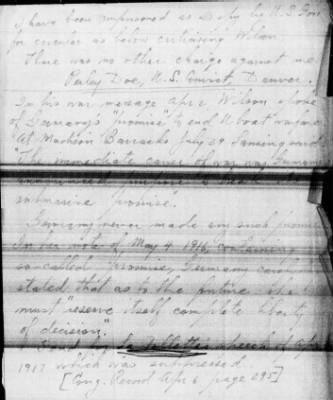 I have been imprisoned as a spy by U.S. Gov
for circular as below criticising Wilson
There was no other charge against me
Perley Doe, U.S. Convict, Denver.
In his war message Apr 2 Wilson spoke
of Germany's "promise" to end U boat
At Madison Barracks July 29 Lansing said
"The immediate cause of our war
submarine promise".
Germany never made any such promise
In her note of May 4 1916, containing
so called promise, Germany
stated that as to the future she
must "reserve itself complete liberty
of decision."
La Follette's speech of Apr
1917 which was suppressed
[Cong. Record Apr 6 page 235]